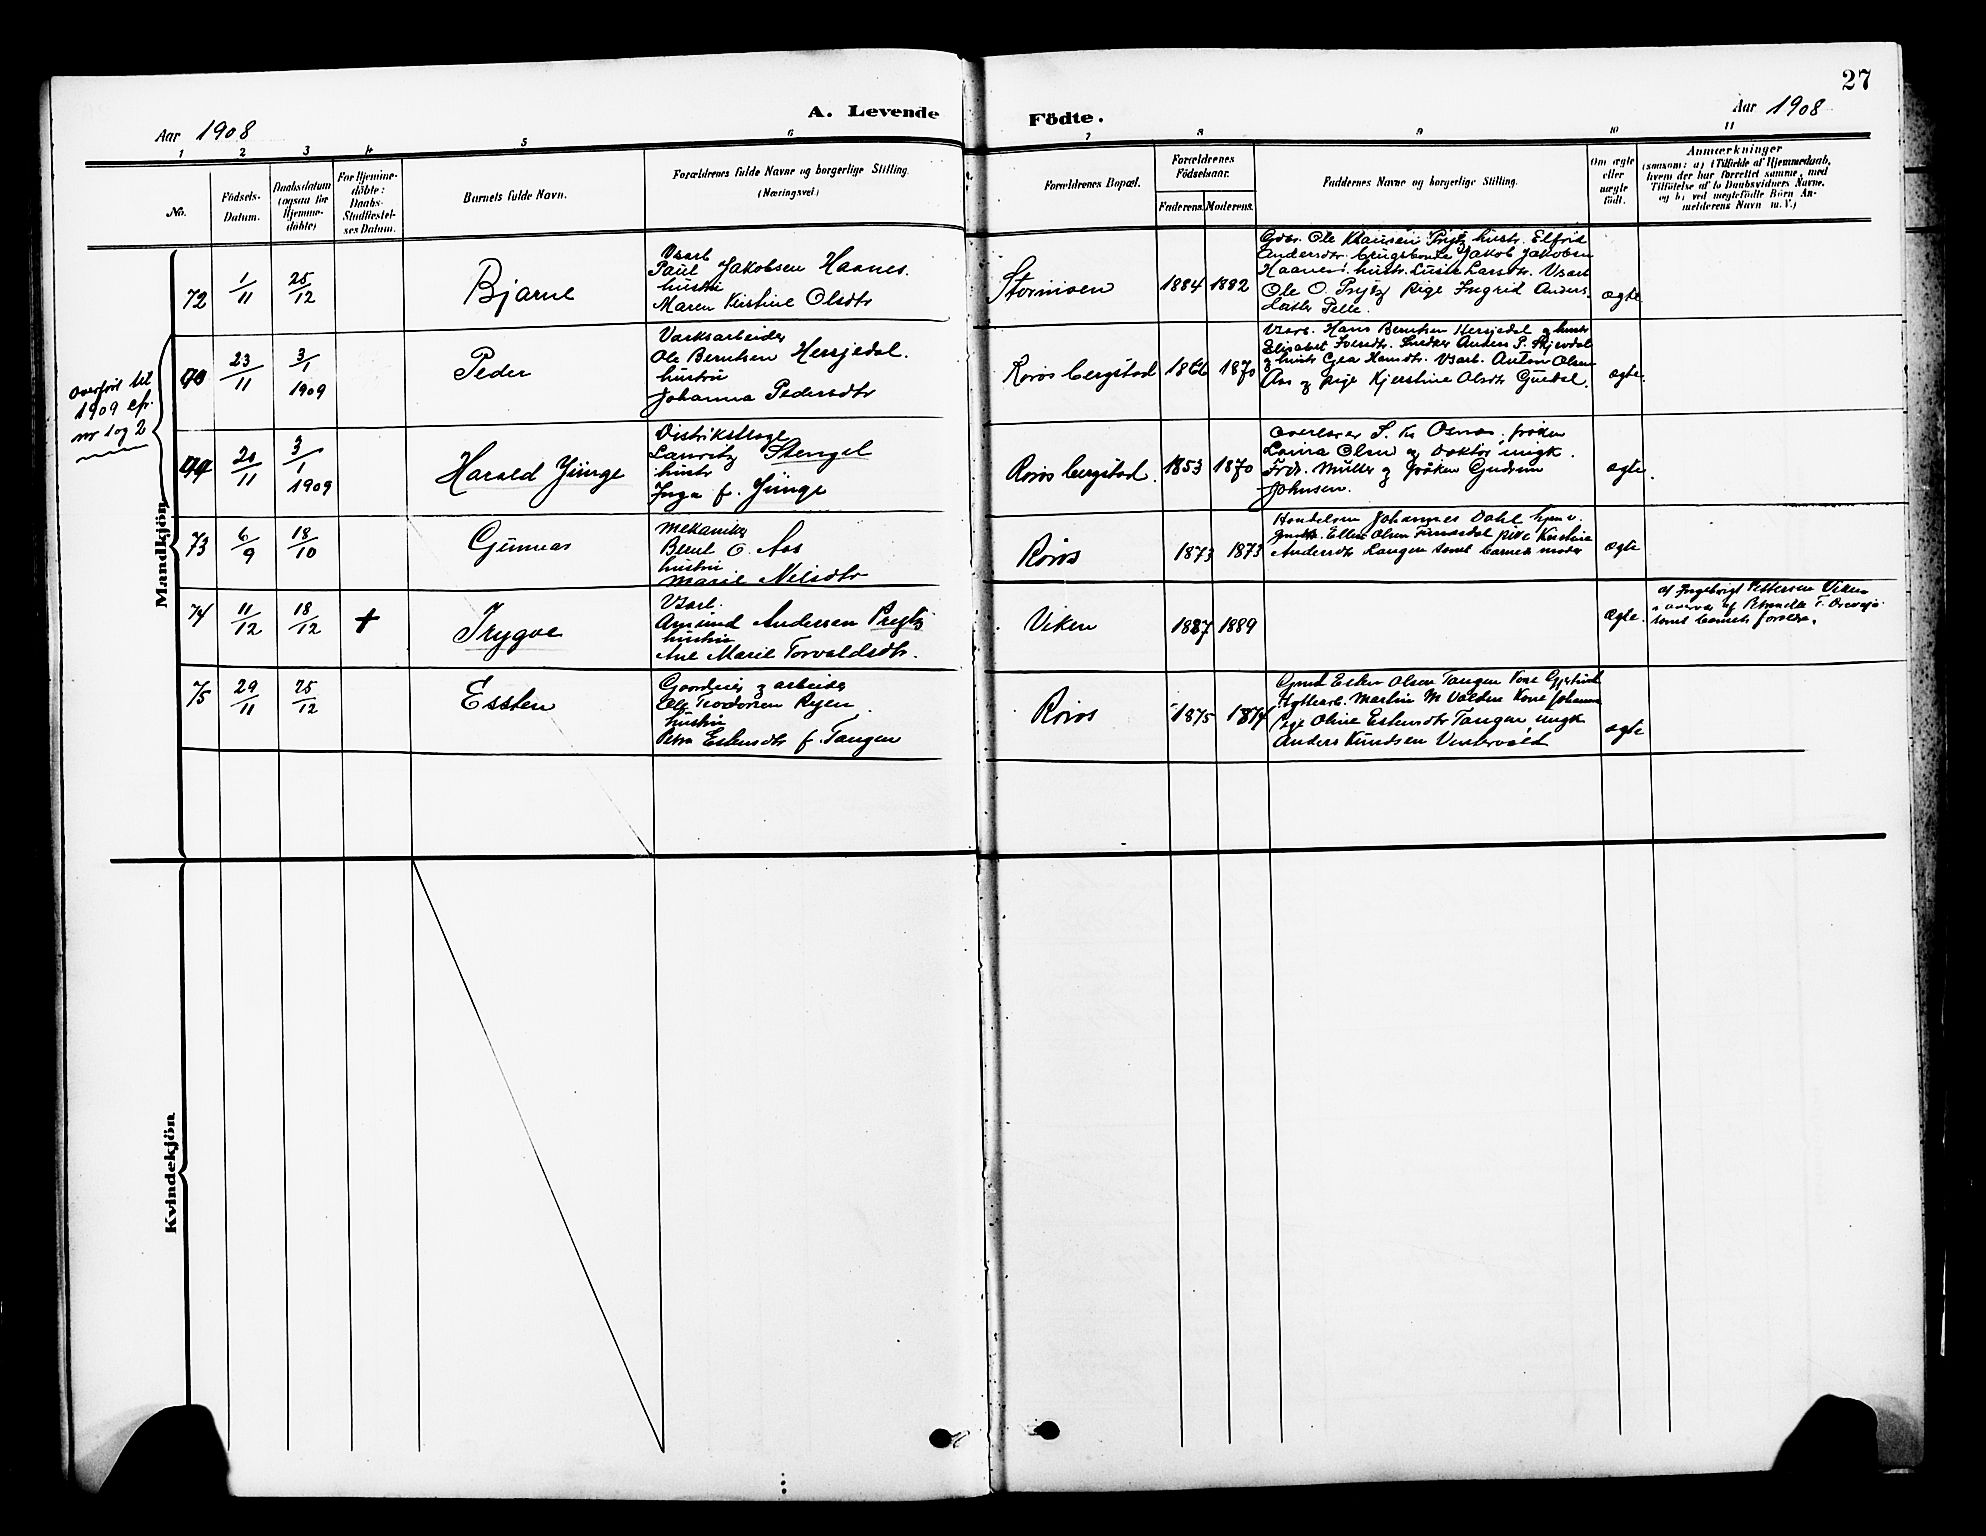 27
A. Levende Födte.
Aar 1908
Aar 1908
1 2 3 4 5 6 7 8 9 10 11
No.
Födsels-Datum.
Daabsdatum (ogsaa for Hjemmedöbte)
For Hjemmedöbte: Daabs-Stadfæstelses Datum.
Barnets fulde Navn.
Forældrenes fulde Navne og borgerlige Stilling.
(Næringsvei)
Forældrenes Bopæl.
Forældrenes Födselsaar.
Faderens. Moderens.
Faddernes Navne og borgerlige Stilling.
Om ægte eller uægte födt.
Anmærkninger
(saasom: a) i Tilfælde af Hjemmedaab,
hvem der har forrettet samme, med
Tilföielse af to Daabsvidners Navne,
og b) ved uægtefödte Börn An-
melderens Navn m. V.)
Mandkjön
Kvindekjön
overført til
1909 efr.
nr 1 og 2
72 1/11 25/12 Bjarne
Vsarb
Paul Jakobsen Haanes.
hustru
Maren Kirstine Olsdtr
Stormoen 1884 1882
Gbr. Ole Klausen Prytz hustr. Elfrid
Andersdtr. brugsbonde Jakob Jakobsen
Haanes hustr. Lusie Larsdtr. Vsarb
Ole O. Prytz Pige Ingrid Anders-
datter Pelle.
ægte
23/11 3/1 1909 Peder
Varksarbeider
Ole Berntsen Hersjedal.
hustru
Johanna Pedersdtr
Roros bergstad 1866 1870
Vsarb. Hans Berntsen Hersjedal og hustr
Elisabet Iversdtr. Snedker Anders P. Skjevdal
og hustr Gea Hansdtr. Vsarb. Anton Olsen
Aas og pige Kjerstine Olsdtr
ægte.
20/11 3/1 1909 Harald Jünge
Distriktslæge
Lauritz Stengel
hustr
Inga f. Jünge
Roros bergstad. 1853 1870
Overlærer S. Kr Osnes. frøken
Laura Olsen og Doktor ungk.
Frdr. Müller og frøken Gudrun
Johnsen.
ægte.
73 6/9 18/10 Gunnar
Mekaniker
Bernt O. Aas
hustru
Marie Nilsdtr
Roros 1873 1873
Handelsm Johannes Dahl
Ellen Olsen pike Kirstine
Andersdtr Langen samt barnets moder
ægte
74 11/12 18/12 + Trygve
Vsarb.
Amund Andersen Prytz
hustru
Ane Marie Torvaldsdtr.
Viken 1887 1889
ægte.
af Ingebrigt Pettersen Viken
i overvær af Petronelle T.
samt barnets forældre.
75 29/11 25/12 Essten
Gaardeier og arbeider
Teodorsen Ryen
hustru
Petra Estensdtr f. Tangen
Roros 1875 1874
Gbrd Esten Olsen Tangen Kone Gjertrud
Hyttearb. Martin M Volden Kone Johanna
Pige Oline Estensdtr Tangen ungk
Anders Knudsen Vintervold
ægte